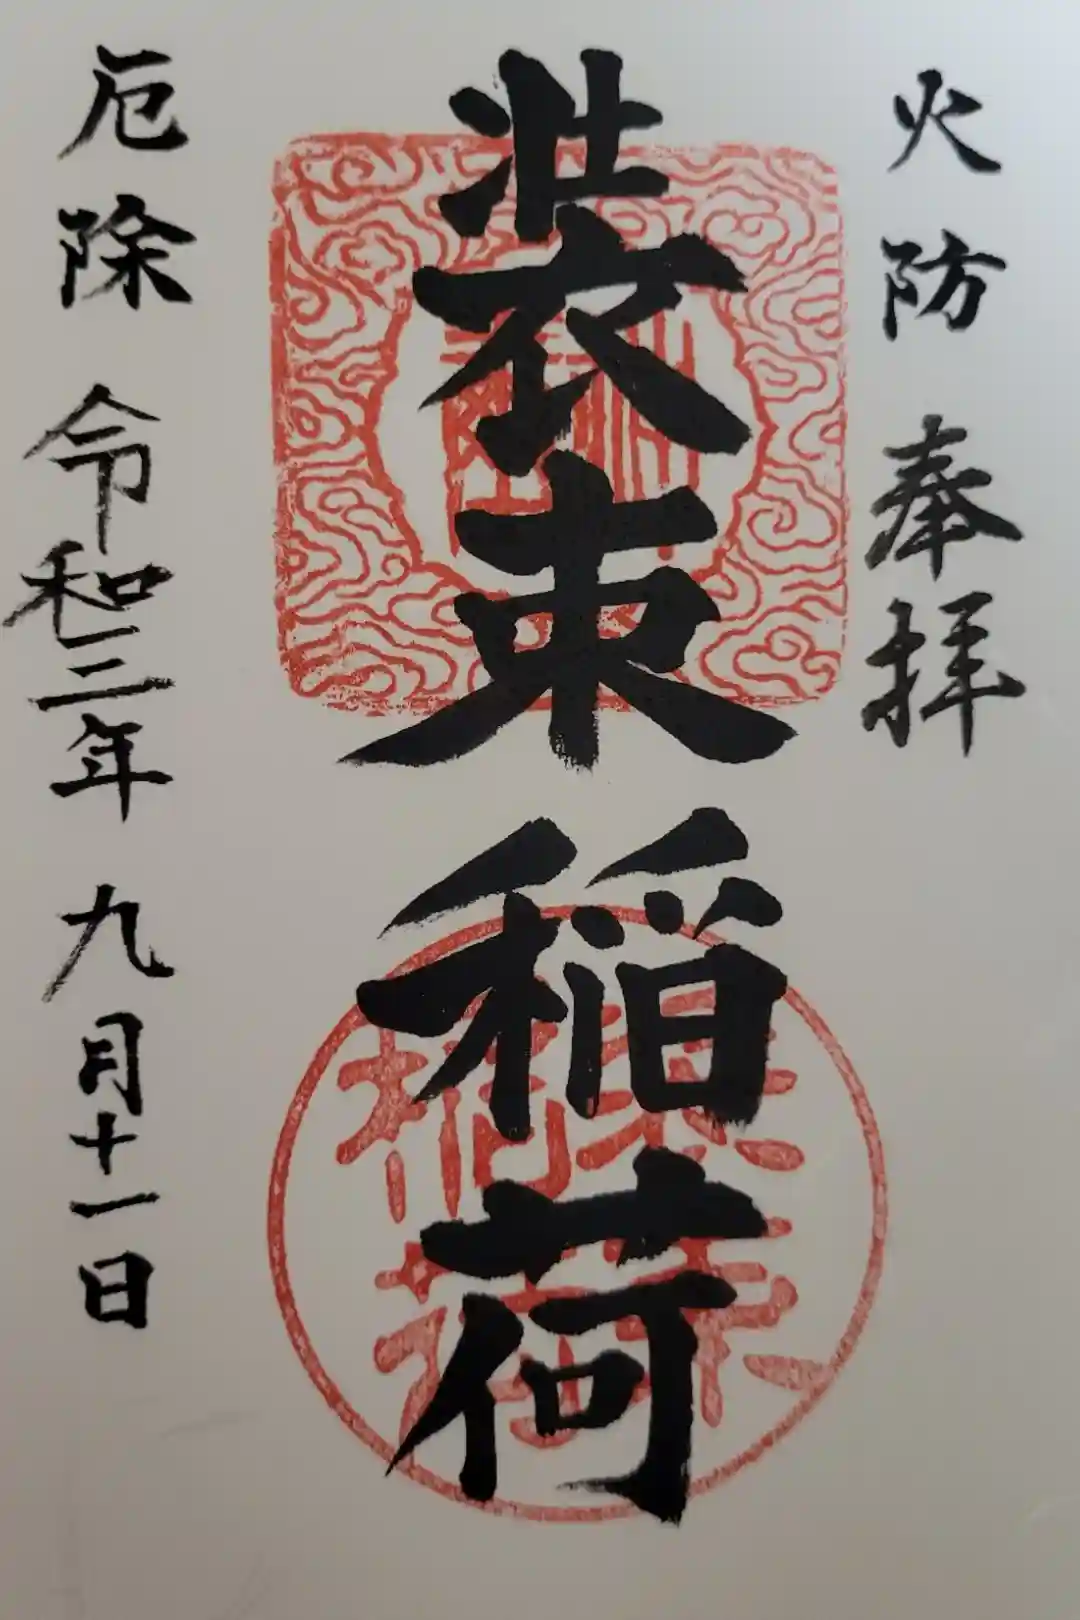 火防 奉拝
装束稲荷
厄除 令和三年 九月十一日